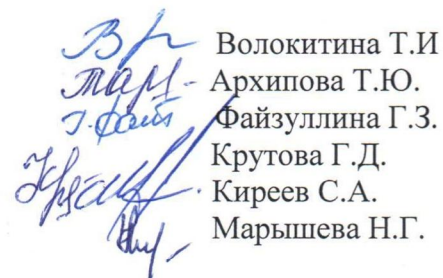 Волокитина Т.И
Архипова Т.Ю.
Файзуллина Г.З.
Крутова Г.Д.
Киреев С.А.
Марышева Н.Г.